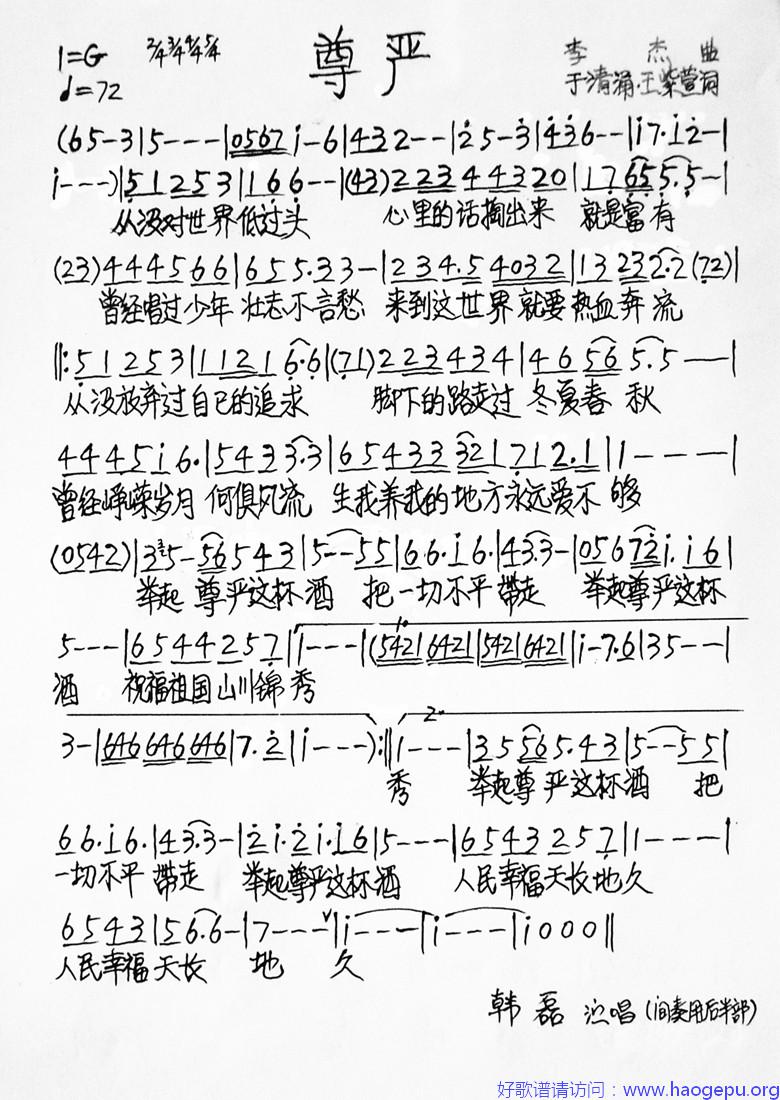 1=G 2/4 3/4 4/4 5/4 尊严 李杰曲
♩=72 于清涌·王紫萱词
(65-3|5---|0567 i-6|432--|25-3|436--|i7·i2-|
i---)|512 53|166--|(43)223 44320|1765 5·5-|
从没对世界低过头 心里的话掏出来 就是富有
(23)444566|655·33-|234·5 4032|13232·2(72)|
曾经唱过少年 壮志不言愁 来到这世界就要热血奔流
‖:51253|11216·6|(71)223434|46565·5--|
从没放弃过自己的追求 脚下的路走过 冬夏春 秋
4445i6·|5433·3|654333 2|1712·1|1----|
曾经峥嵘岁月 何惧风流 生我养我的地方永远爱不 够
(0542)|35-56543|5--55|66·i6·|43·3-|05672i·i6|
举起 尊严这杯酒 把一切不平带走 举起尊严这杯
5---|6544257|1---|(5421 6421|5421 6421|i-7·6|35--|
酒 祝福祖国山川锦 秀
3-|646 646 646|7·2|i---):‖1---|35565·43|5--55|
秀 举起尊严这杯酒 把
66·i6·|43·3-|2i·2i·i6|5---|6543257|1---|
一切不平 带走 举起尊严这杯酒 人民幸福天长地久
6543|56·6-|7---|i---|i---|i000‖
人民幸福天长 地 久
韩磊 演唱(间奏用后半部)
好歌谱请访问：www.haogepu.org